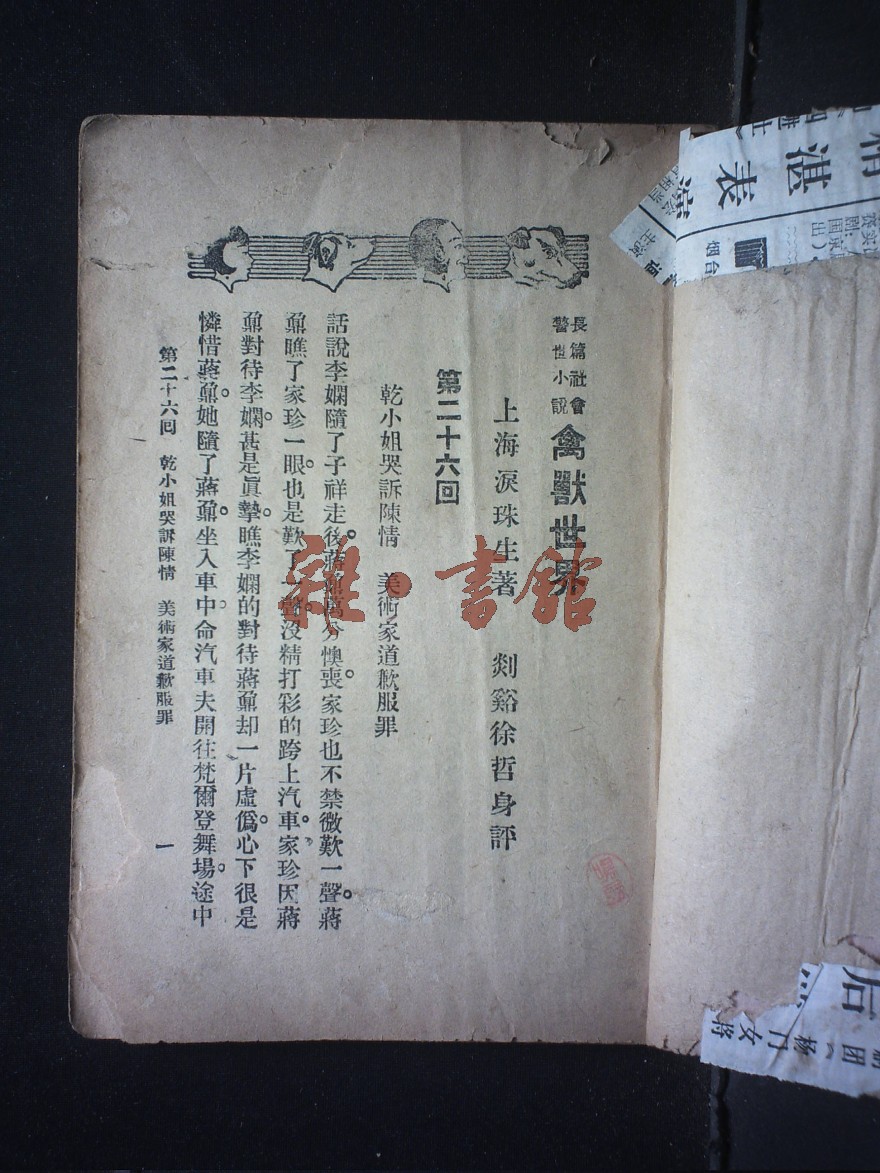 長篇社會
警世小說
禽獸世界
上海淚珠生著　剡谿徐哲身評
第二十六回
乾小姐哭訴陳情　美術家道歉服罪
話說李嫻隨了子祥走後。蔣鼐萬分懊喪。家珍也不禁微歎一聲。蔣
鼐瞧了家珍一眼。也是歎了一聲。沒精打彩的跨上汽車。家珍因蔣
鼐對待李嫻。甚是眞摯。瞧李嫻的對待蔣鼐却一片虛僞。心下很是
憐惜蔣鼐。她隨了蔣鼐。坐入車中。命汽車夫開往梵爾登舞場。途中
第二十六回　乾小姐哭訴陳情　美術家道歉服罪
一
雜·書館
精湛表演
烟台
后
杨门女将